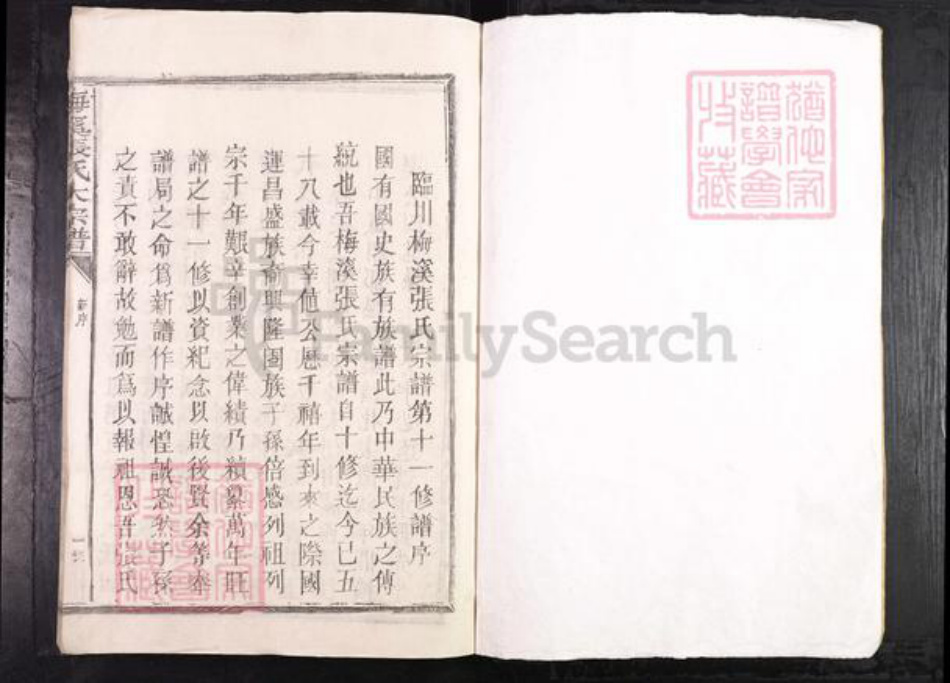 臨川梅溪張氏宗譜第十一修譜序
國有國史族有族譜此乃中華民族之傳
統也吾梅溪張氏宗譜自十修迄今已五
十八載今幸值公歷千禧年到來之際國
運昌盛族裔興隆闔族子孫倍感列祖列
宗千年艱辛創業之偉績乃續纂萬年旺
譜之十一修以資紀念以啟後賢余等奉
譜局之命爲新譜作序誠惶誠恐然子孫
之責不敢辭故勉而爲以報祖恩吾張氏
梅溪張氏大宗譜
新序
猶他家
譜學會
收藏
FamilySearch